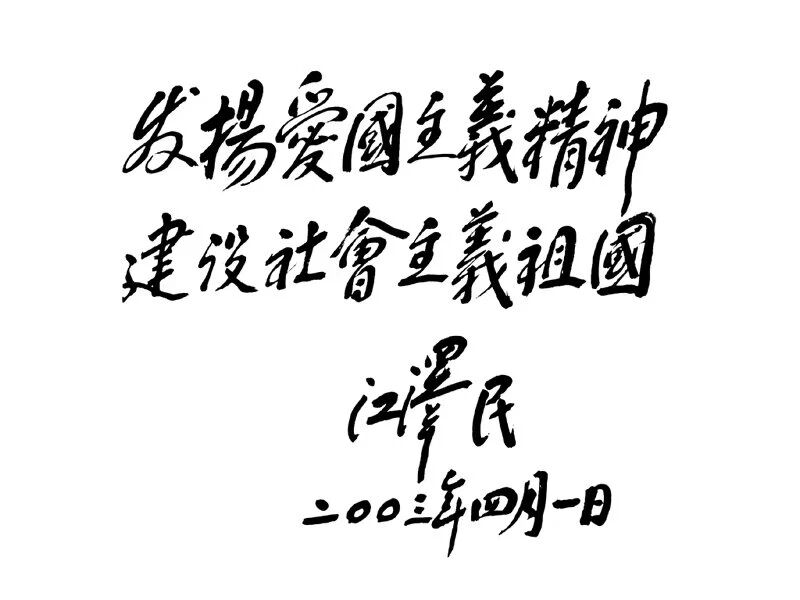 发揚愛國主義精神
建设社會主義祖國
江澤民
二〇〇三年四月一日